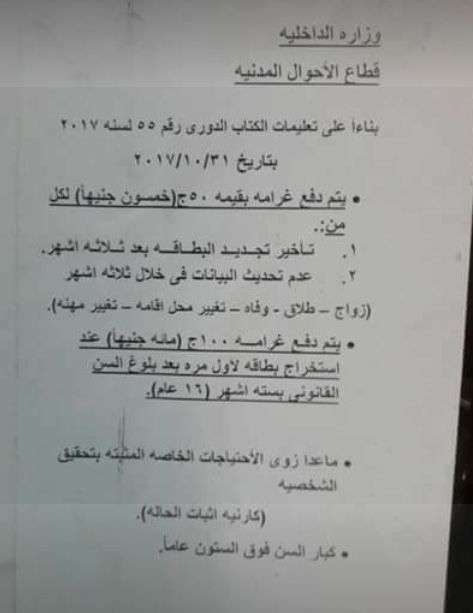 وزاره الداخليه
قطاع الأحوال المدنيه
بناءاً على تعليمات الكتاب الدورى رقم ٥٥ لسنه ٢٠١٧
بتاريخ ٢٠١٧/١٠/٣١
• يتم دفع غرامه بقيمه ٥٠ج(خمسون جنيهاً) لكل
من:.
١. تأخير تجديد البطاقه بعد ثلاثه اشهر.
٢. عدم تحديث البيانات فى خلال ثلاثه اشهر
(زواج – طلاق - وفاه – تغيير محل اقامه – تغيير مهنه).
• يتم دفع غرامه ١٠٠ج (مائه جنيهاً) عند
استخراج بطاقه لأول مره بعد بلوغ السن
القانونى بسته اشهر (١٦ عام).
• ماعدا زوى الأحتياجات الخاصه المثبته بتحقيق
الشخصيه
(كارنيه اثبات الحاله).
• كبار السن فوق الستون عاماً.